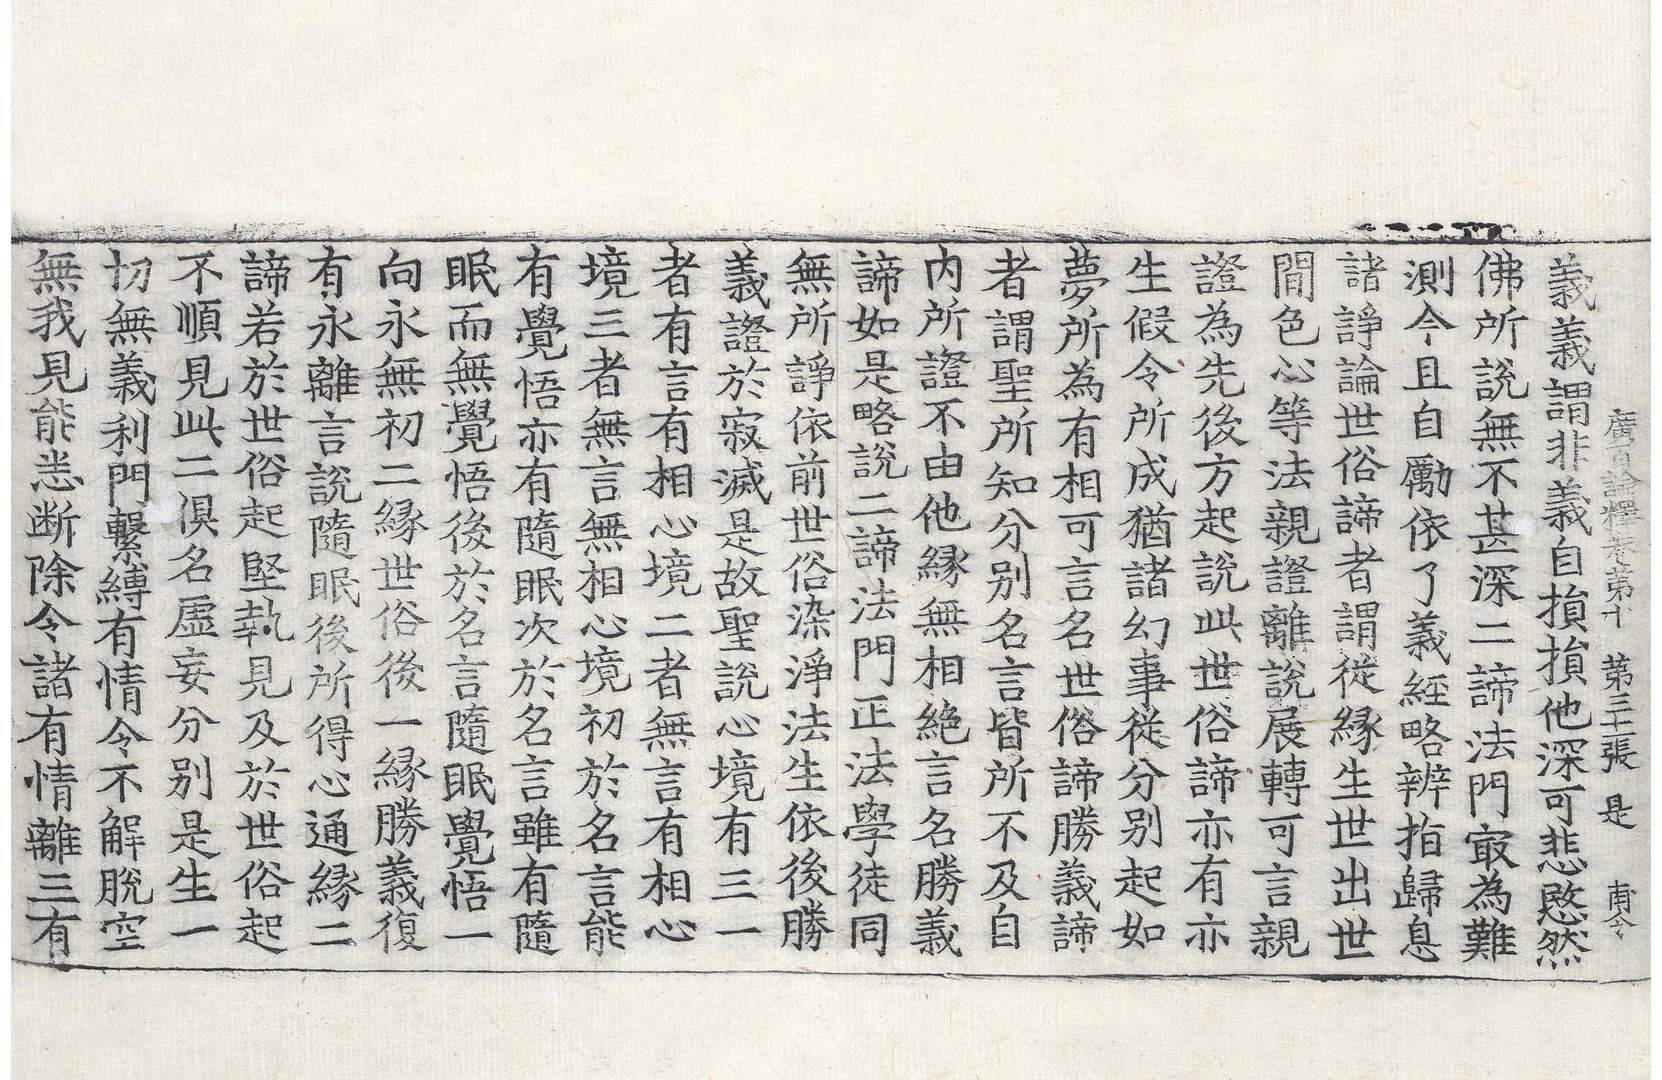 廣百論釋卷第十　第三十二張　是　甫今
義義謂非義自損損他深可悲愍然
佛所說無不甚深二諦法門㝡為難
測今且自勵依了義経略辨指歸息
諸諍論世俗諦者謂從縁生世出世
間色心等法親證離說展轉可言親
證為先後方起說此世俗諦亦有亦
生假令所成猶諸幻事從分別起如
夢所為有相可言名世俗諦勝義諦
者謂聖所知分别名言皆所不及自
内所證不由他縁無相絶言名勝義
諦如是略說二諦法門正法學徒同
無所諍依前世俗染淨法生依後勝
義證於寂滅是故聖說心境有三一
者有言有相心境二者無言有相心
境三者無言無相心境初於名言能
有覺悟亦有隨眠次於名言雖有隨
眠而無覺悟後於名言隨眠覺悟一
向永無初二縁世俗後一縁勝義復
有永離言說隨眠後所得心通縁二
諦若於世俗起堅執見及於世俗起
不順見此二俱名虛妄分別是生一
切無義利門繫縛有情令不解脫空
無我見能悉断除令諸有情離三有